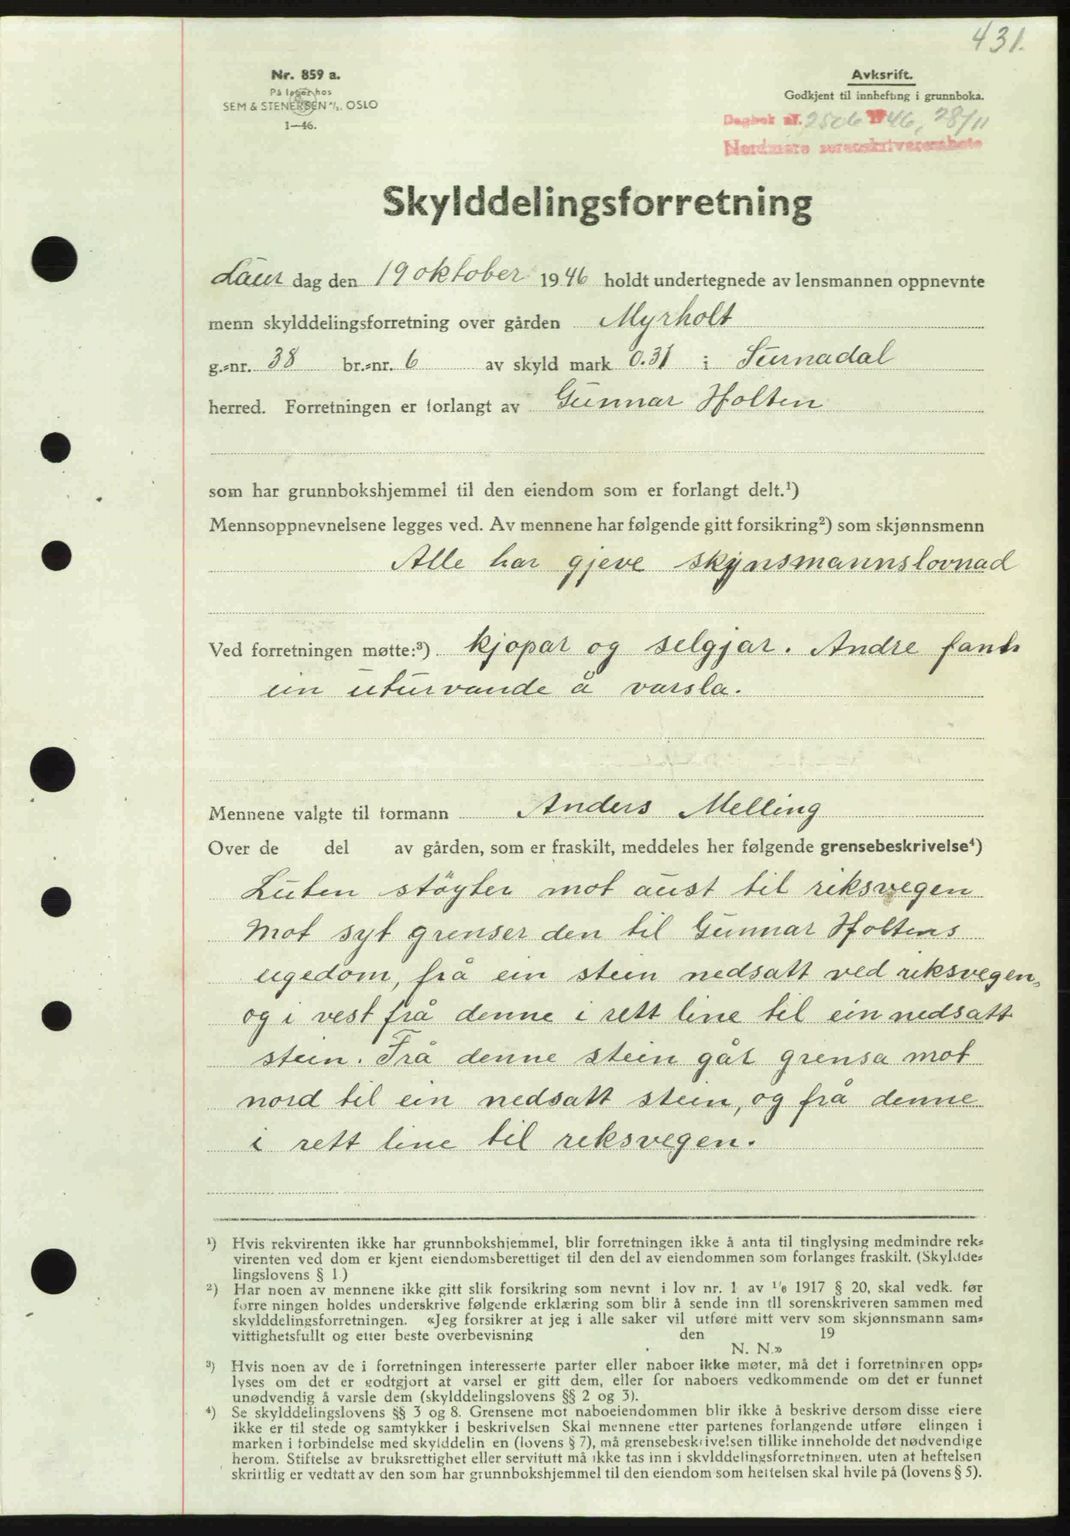 431.
Nr. 859 a.
På lager hos
SEM & STENERSEN A/S. OSLO
1—46.
Avksrift.
Godkjent til innhefting i grunnboka.
Dagbok nr. 2506 1946, 28/11
Nordmøre sorenskriverembete
Skylddelingsforretning
Laur dag den 19 oktober 1946 holdt undertegnede av lensmannen oppnevnte
menn skylddelingsforretning over gården Myrholt
g.-nr. 38 br.-nr. 6 av skyld mark 0.31 i Surnadal
herred. Forretningen er forlangt av Gunnar Holten
som har grunnbokshjemmel til den eiendom som er forlangt delt.¹)
Mennsoppnevnelsene legges ved. Av mennene har følgende gitt forsikring²) som skjønnsmenn
Alle har gjeve skynsmannslovnad
Ved forretningen møtte:³) kjøpar og selgjar. Andre fant
ein uturvande å varsla.
Mennene valgte til formann Anders Melling
Over de del av gården, som er fraskilt, meddeles her følgende grensebeskrivelse⁴)
Luten støyter mot aust til riksvegen
Mot syt grenser den til Gunnar Holtens
eigedom, frå ein stein nedsatt ved riksvegen,
og i vest frå denne i rett line til ein nedsatt
stein. Frå denne stein går grensa mot
nord til ein nedsatt stein, og frå denne
i rett line til reksvegen.
¹) Hvis rekvirenten ikke har grunnbokshjemmel, blir forretningen ikke å anta til tinglysing medmindre rek-
virenten ved dom er kjent eiendomsberettiget til den del av eiendommen som forlanges fraskilt. (Skyldde-
lingslovens § 1.)
²) Har noen av mennene ikke gitt slik forsikring som nevnt i lov nr. 1 av 1/6 1917 § 20, skal vedk. før
forretningen holdes underskrive følgende erklæring som blir å sende inn til sorenskriveren sammen med
skylddelingsforretningen. «Jeg forsikrer at jeg i alle saker vil utføre mitt verv som skjønnsmann sam-
vittighetsfullt og etter beste overbevisning den 19
N. N.»
³) Hvis noen av de i forretningen interesserte parter eller naboer ikke møter, må det i forretningen opp-
lyses om det er godtgjort at varsel er gitt dem, eller for naboers vedkommende om det er funnet
unødvendig å varsle dem (skylddelingslovens §§ 2 og 3).
⁴) Se skylddelingslovens §§ 3 og 8. Grensene mot naboeiendommen blir ikke å beskrive dersom disse eiere
ikke er til stede og samtykker i beskrivelsen Skal mennene etter partenes forlangende utføre elingen i
marken i forbindelse med skylddelin en (lovens § 7), må grensebeskrivelsen tillike inneholde det nødvendige
herom. Stiftelse av bruksrettighet eller servitutt må ikke tas inn i skylddelingsforretningen, uten at heftelsen
skriftlig er vedtatt av den som har grunnbokshjemmel til den eiendom som heftelsen skal hvile på (lovens § 5).